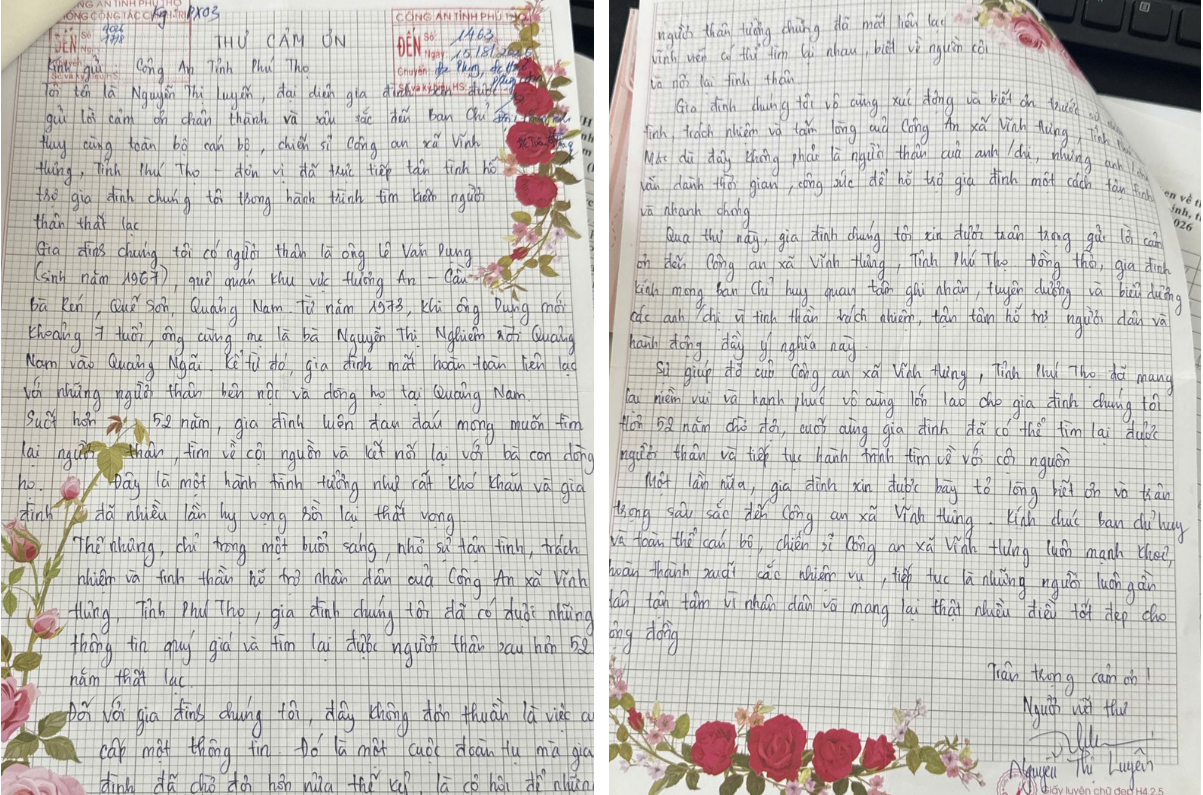 CÔNG AN TỈNH PHÚ THỌ
PHÒNG CÔNG TÁC CHÍNH TRỊ
ĐẾN
Số
PX03
CÔNG AN TỈNH PHÚ THỌ
ĐẾN
Số: 1463
Ngày: 15/8/
Chuyển:
Số và ký hiệu HS:
THƯ CẢM ƠN
Kính gửi: Công An Tỉnh Phú Thọ
Tôi tôi là Nguyễn Thị Luyến, đại diện gia đình xin được
gửi lời cảm ơn chân thành và sâu sắc đến Ban Chỉ
huy cùng toàn bộ cán bộ, chiến sĩ Công an xã Vĩnh
Hưng, Tỉnh Phú Thọ - đơn vị đã trực tiếp tận tình hỗ
trợ gia đình chúng tôi trong hành trình tìm kiếm người
thân thất lạc
Gia đình chúng tôi có người thân là ông Lê Văn Dung
(sinh năm 1967), quê quán khu vực Hương An - Cầu
Bà Rén, Quế Sơn, Quảng Nam. Từ năm 1973, khi ông Dung mới
khoảng 7 tuổi, ông cùng mẹ là bà Nguyễn Thị Nghiêm rời Quảng
Nam vào Quảng Ngãi. Kể từ đó, gia đình mất hoàn toàn liên lạc
với những người thân bên nội và dòng họ tại Quảng Nam.
Suốt hơn 52 năm, gia đình luôn đau đáu mong muốn tìm
lại người thân, tìm về cội nguồn và kết nối lại với bà con dòng
họ. Đây là một hành trình tưởng như rất khó khăn và gia
đình đã nhiều lần hy vọng rồi lại thất vọng
Thế nhưng, chỉ trong một buổi sáng, nhờ sự tận tình, trách
nhiệm và tinh thần hỗ trợ nhân dân của Công An xã Vĩnh
Hưng, Tỉnh Phú Thọ, gia đình chúng tôi đã có được những
thông tin quý giá và tìm lại được người thân sau hơn 52
năm thất lạc.
Đối với gia đình chúng tôi, đây không đơn thuần là việc
cấp một thông tin. Đó là một cuộc đoàn tụ mà gia
đình đã chờ đợi hơn nửa thế kỷ, là cơ hội để những
người thân tưởng chừng đã mất liên lạc
vĩnh viễn có thể tìm lại nhau, biết về nguồn cội
và nối lại tình thân.
Gia đình chúng tôi vô cùng xúc động và biết ơn trước
tình, trách nhiệm và tấm lòng của Công An xã Vĩnh Hưng, Tỉnh
Mặc dù đây không phải là người thân của anh/chị, nhưng anh
vẫn dành thời gian, công sức để hỗ trợ gia đình một cách tận tình
và nhanh chóng
Qua thư này, gia đình chúng tôi xin được trân trọng gửi lời cảm
ơn đến Công an xã Vĩnh Hưng, Tỉnh Phú Thọ Đồng thời, gia đình
kính mong ban Chỉ huy quan tâm ghi nhận, tuyên dương và biểu dương
các anh/chị vì tinh thần trách nhiệm, tận tâm hỗ trợ người dân và
hành động đầy ý nghĩa này.
Sự giúp đỡ của Công an xã Vĩnh Hưng, Tỉnh Phú Thọ đã mang
lại niềm vui và hạnh phúc vô cùng lớn lao cho gia đình chúng tôi.
Hơn 52 năm chờ đợi, cuối cùng gia đình đã có thể tìm lại được
người thân và tiếp tục hành trình tìm về với cội nguồn
Một lần nữa, gia đình xin được bày tỏ lòng biết ơn và trân
trọng sâu sắc đến Công an xã Vĩnh Hưng. Kính chúc ban chỉ huy
và toàn thể cán bộ, chiến sĩ Công an xã Vĩnh Hưng luôn mạnh khoẻ,
hoàn thành xuất sắc nhiệm vụ, tiếp tục là những người luôn gần
dân, tận tâm vì nhân dân và mang lại thật nhiều điều tốt đẹp cho
ộng đồng
Trân trọng cảm ơn!
Người viết thư
Nguyễn Thị Luyến
Giấy luyện chữ đẹp H4.2.5